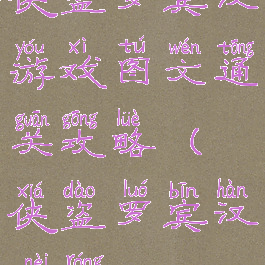 侠盗罗宾汉
yóu xì tú wén tōng
游戏图文通
guān gōng lüè
关攻略（
xiá dào luó bīn hàn
侠盗罗宾汉
nèi róng